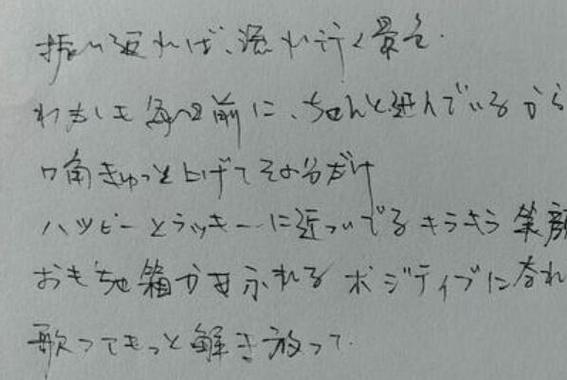 振り返れば、流れ行く景色
わたしも毎日前に、ちゃんと進んでいるから
口角きゅっと上げてその分だけ
ハッピーとラッキーに近づいてるキラキラ笑顔
おもちゃ箱から示れる ポジティブに奏れ
歌ってきっと解き放って